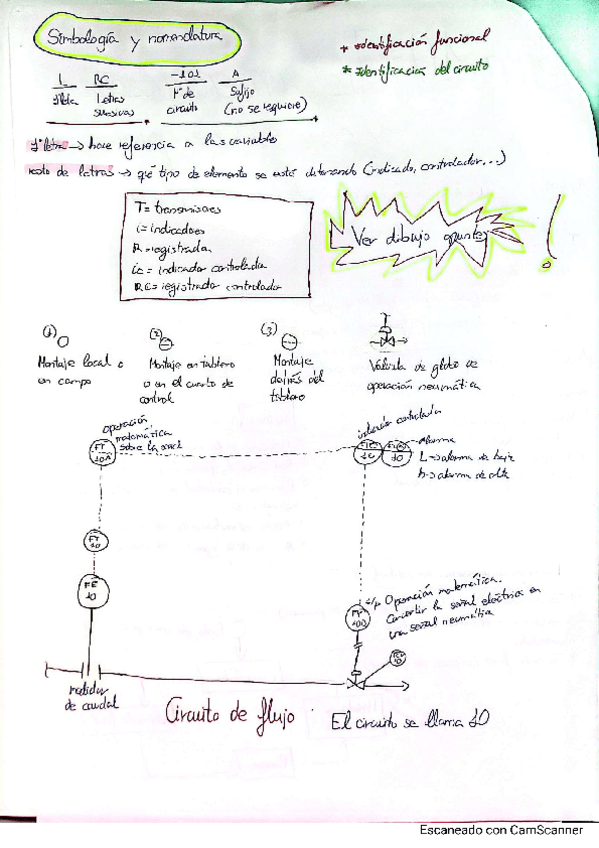 Simbología y nomenclatura
* identificación funcional
* identificación del circuito
L RC -101 A
1ª letra Letras sucesivas Nº de circuito Sufijo (no se requiere)
1ª letra → hace referencia a las variable
resto de letras → qué tipo de elemento se está diferenciando (indicado, controlador,...)
T = transmisores
i = indicadores
R = registrada
ic = indicador controlada
RC = registrada controlador
Ver dibujo apuntes !
(1)
Montaje local o en campo
(2)
Montaje en tablero o en el cuarto de control
(3)
Montaje detrás del tablero
Válvula de globo de operación neumática
operación matemática sobre la señal
FY 10A
indicador controlador
FIC 10
10
alarma
L → alarma de baja
h → alarma de alta
FT 10
FE 10
medidor de caudal
I/P Operación matemática. Convertir la señal eléctrica en una señal neumática
FY 10
10
Circuito de flujo
El circuito se llama 10
Escaneado con CamScanner